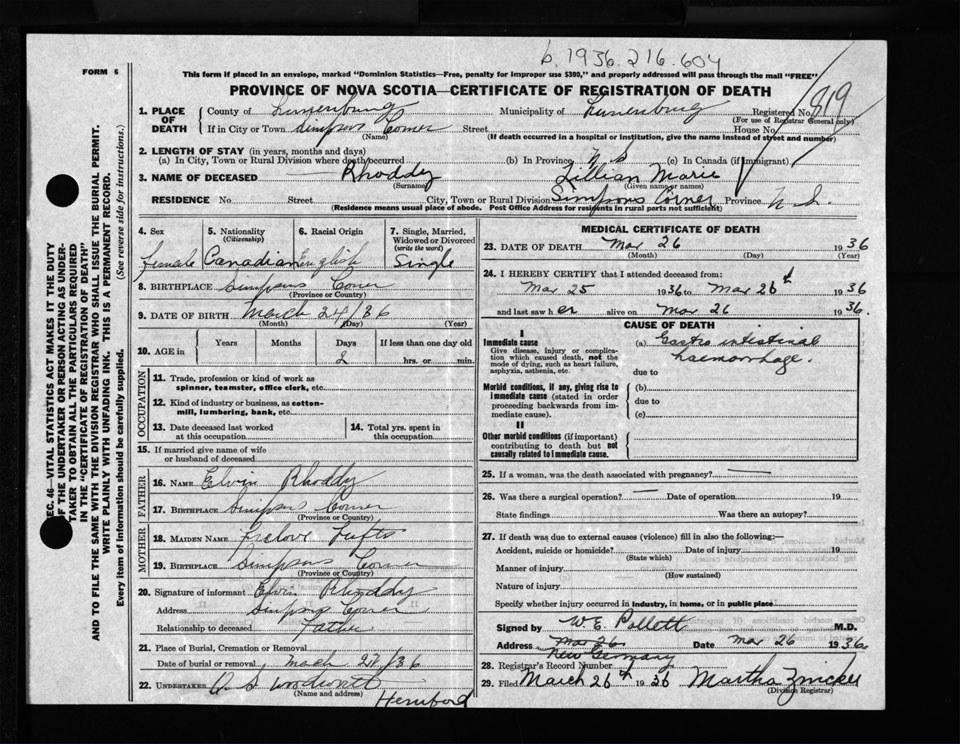 b. 1936. 216. 604
FORM 6
This form if placed in an envelope, marked "Dominion Statistics—Free, penalty for improper use $300," and properly addressed will pass through the mail "FREE"
PROVINCE OF NOVA SCOTIA—CERTIFICATE OF REGISTRATION OF DEATH
1. PLACE OF DEATH County of Lunenburg Municipality of Lunenburg Registered No. 819
(For use of Registrar General only)
If in City or Town Simpsons Corner Street House No.
(Name) (If death occurred in a hospital or institution, give the name instead of street and number)
2. LENGTH OF STAY (in years, months and days)
(a) In City, Town or Rural Division where death occurred (b) In Province N S (c) In Canada (if immigrant)
3. NAME OF DECEASED Rhoddy Lillian Marie
(Surname) (Given name or names)
RESIDENCE No. Street City, Town or Rural Division Simpsons Corner Province N. S.
(Residence means usual place of abode. Post Office Address for residents in rural parts not sufficient)
SEC. 46—VITAL STATISTICS ACT MAKES IT THE DUTY
OF THE UNDERTAKER OR PERSON ACTING AS UNDER-
TAKER TO OBTAIN ALL THE PARTICULARS REQUIRED
IN THE "CERTIFICATE OF REGISTRATION OF DEATH"
AND TO FILE THE SAME WITH THE DIVISION REGISTRAR WHO SHALL ISSUE THE BURIAL PERMIT.
WRITE PLAINLY WITH UNFADING INK. THIS IS A PERMANENT RECORD.
Every item of Information should be carefully supplied. (See reverse side for instructions.)
4. Sex 5. Nationality 6. Racial Origin 7. Single, Married,
(Citizenship) Widowed or Divorced
(write the word)
female Canadian English Single
8. BIRTHPLACE Simpsons Corner
(Province or Country)
9. DATE OF BIRTH March 24/36
(Month) (Day) (Year)
10. AGE in Years Months Days If less than one day old
2 hrs. or min.
OCCUPATION
11. Trade, profession or kind of work as
spinner, teamster, office clerk, etc.
12. Kind of industry or business, as cotton-
mill, lumbering, bank, etc.
13. Date deceased last worked
at this occupation
14. Total yrs. spent in
this occupation
15. If married give name of wife
or husband of deceased
FATHER
16. NAME Elvin Rhoddy
17. BIRTHPLACE Simpsons Corner
(Province or Country)
MOTHER
18. MAIDEN NAME Tufts
19. BIRTHPLACE Simpsons Corner
(Province or Country)
20. Signature of informant Elvin Rhoddy
Address Simpsons Corner
Relationship to deceased Father
21. Place of Burial, Cremation or Removal
Date of burial or removal March 27/36
22. UNDERTAKER Woodworth
(Name and address)
Hemford
MEDICAL CERTIFICATE OF DEATH
23. DATE OF DEATH Mar 26 1936
(Month) (Day) (Year)
24. I HEREBY CERTIFY that I attended deceased from:
Mar 25 1936 to Mar 26th 1936
and last saw h er alive on Mar 26 1936.
CAUSE OF DEATH
I
Immediate cause
Give disease, injury or complica-
tion which caused death, not the
mode of dying, such as heart failure,
asphyxia, asthenia, etc.
(a) Gastro intestinal
haemorrhage.
due to
Morbid conditions, if any, giving rise to
immediate cause (stated in order
proceeding backwards from im-
mediate cause).
(b)
due to
(c)
II
Other morbid conditions (if important)
contributing to death but not
causally related to immediate cause.
25. If a woman, was the death associated with pregnancy?
26. Was there a surgical operation? — Date of operation 19
State findings Was there an autopsy?
27. If death was due to external causes (violence) fill in also the following:—
Accident, suicide or homicide? Date of injury 19
(State which)
Manner of injury
(How sustained)
Nature of injury
Specify whether injury occurred in industry, in home, or in public place
Signed by W. E. Pollett M.D.
Address Mar 26 Date Mar 26 1936
New Germany
28. Registrar's Record Number
29. Filed March 26th 1936 Martha Zwicker
(Division Registrar)